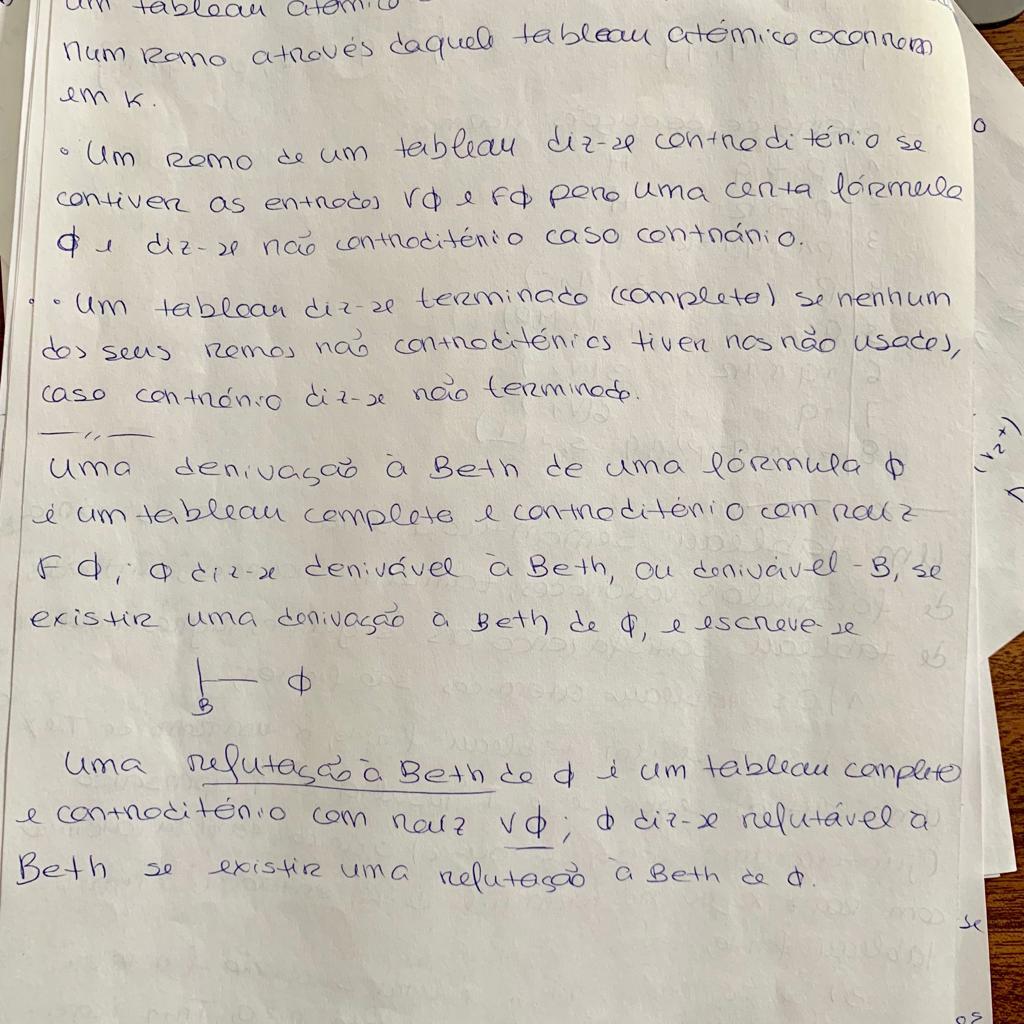 um tableau atómico
num ramo através daquele tableau atómico ocorrem
em K.
• Um ramo de um tableau diz-se contraditório se
contiver as entradas VΦ e FΦ para uma certa fórmula
Φ e diz-se não contraditório caso contrário.
• Um tableau diz-se terminado (completo) se nenhum
dos seus ramos não contraditórios tiver nos não usados,
caso contrário diz-se não terminado.
—〃—
Uma derivação à Beth de uma fórmula Φ
é um tableau completo e contraditório com raiz
FΦ; Φ diz-se derivável à Beth, ou derivável-B, se
existir uma derivação à Beth de Φ, e escreve-se
⊢ Φ
B
Uma refutação à Beth de Φ é um tableau completo
e contraditório com raiz VΦ; Φ diz-se refutável à
Beth se existir uma refutação à Beth de Φ.
se
os